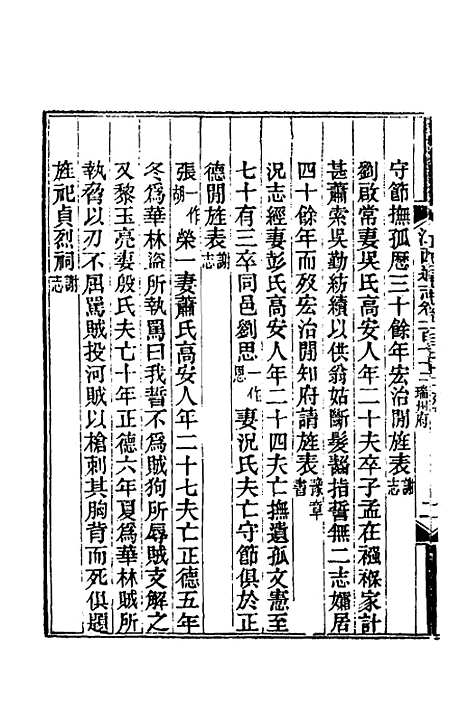 守節撫孤歷三十餘年宏治閒旌表謝志
劉敢常妻吳氏高安人年二十夫卒子孟在襁褓家計
甚蕭索吳勤紡績以供翁姑斷髮齧指誓無二志孀居
四十餘年而歿宏治閒知府請旌表豫章書
況志經妻彭氏高安人年二十四夫亡撫遺孤文憲至
七十有三卒同邑劉思一作恩妻況氏夫亡守節俱於正
德閒旌表謝志
張一作胡榮一妻蕭氏高安人年二十七夫亡正德五年
冬爲華林盜所執罵曰我誓不爲賊狗所辱賊支解之
又黎玉亮妻殷氏夫亡十年正德六年夏爲華林賊所
執脅以刃不屈罵賊投河賊以槍刺其胸背而死俱題
旌祀貞烈祠謝志
江西通志卷一百
瑞州府